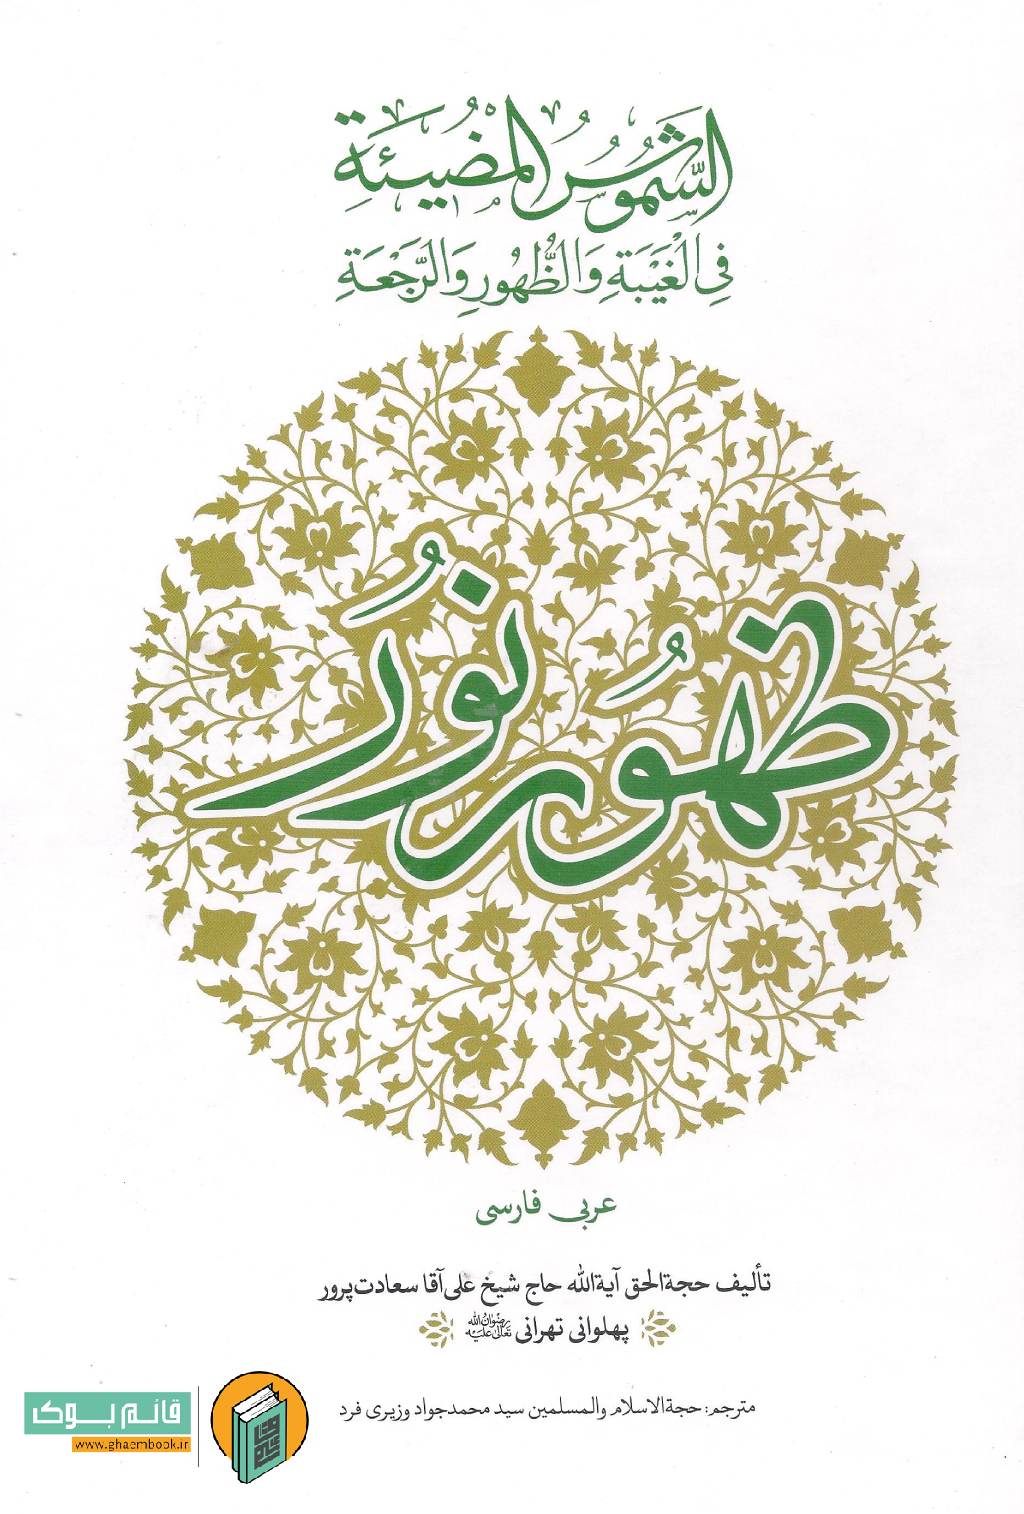 الشُّمُوسُ المُضيـئَة
فِي الْغَيْبَةِ وَالظُّهُورِ وَالرَّجْعَةِ
ظهُور نوُر
عربی فارسی
تألیف حجةالحق آیةالله حاج شیخ علی‌آقا سعادت‌پرور
پهلوانی تهرانی رضوان‌الله تعالی علیه
مترجم: حجةالاسلام والمسلمین سید محمدجواد وزیری فرد
قائم بوک
www.ghaembook.ir